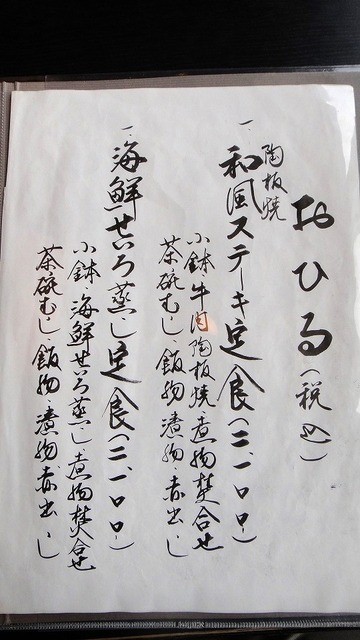 おひる(税込)
陶板焼
一、和風ステーキ定食(二、一〇〇-)
小鉢 牛肉陶板焼・煮物焚合せ
茶碗むし・飯物・漬物・赤出し
一、海鮮せいろ蒸し定食(二、一〇〇-)
小鉢 海鮮せいろ蒸し・煮物焚合せ
茶碗むし・飯物・漬物・赤出し